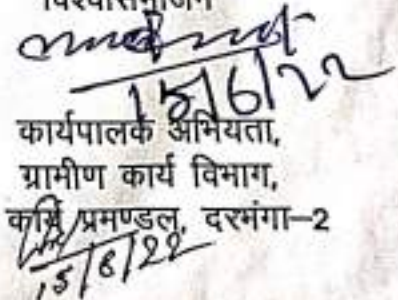 विश्वासभाजन
15/6/22
कार्यपालक अभियंता,
ग्रामीण कार्य विभाग,
कार्य प्रमण्डल, दरभंगा-2
15/6/22